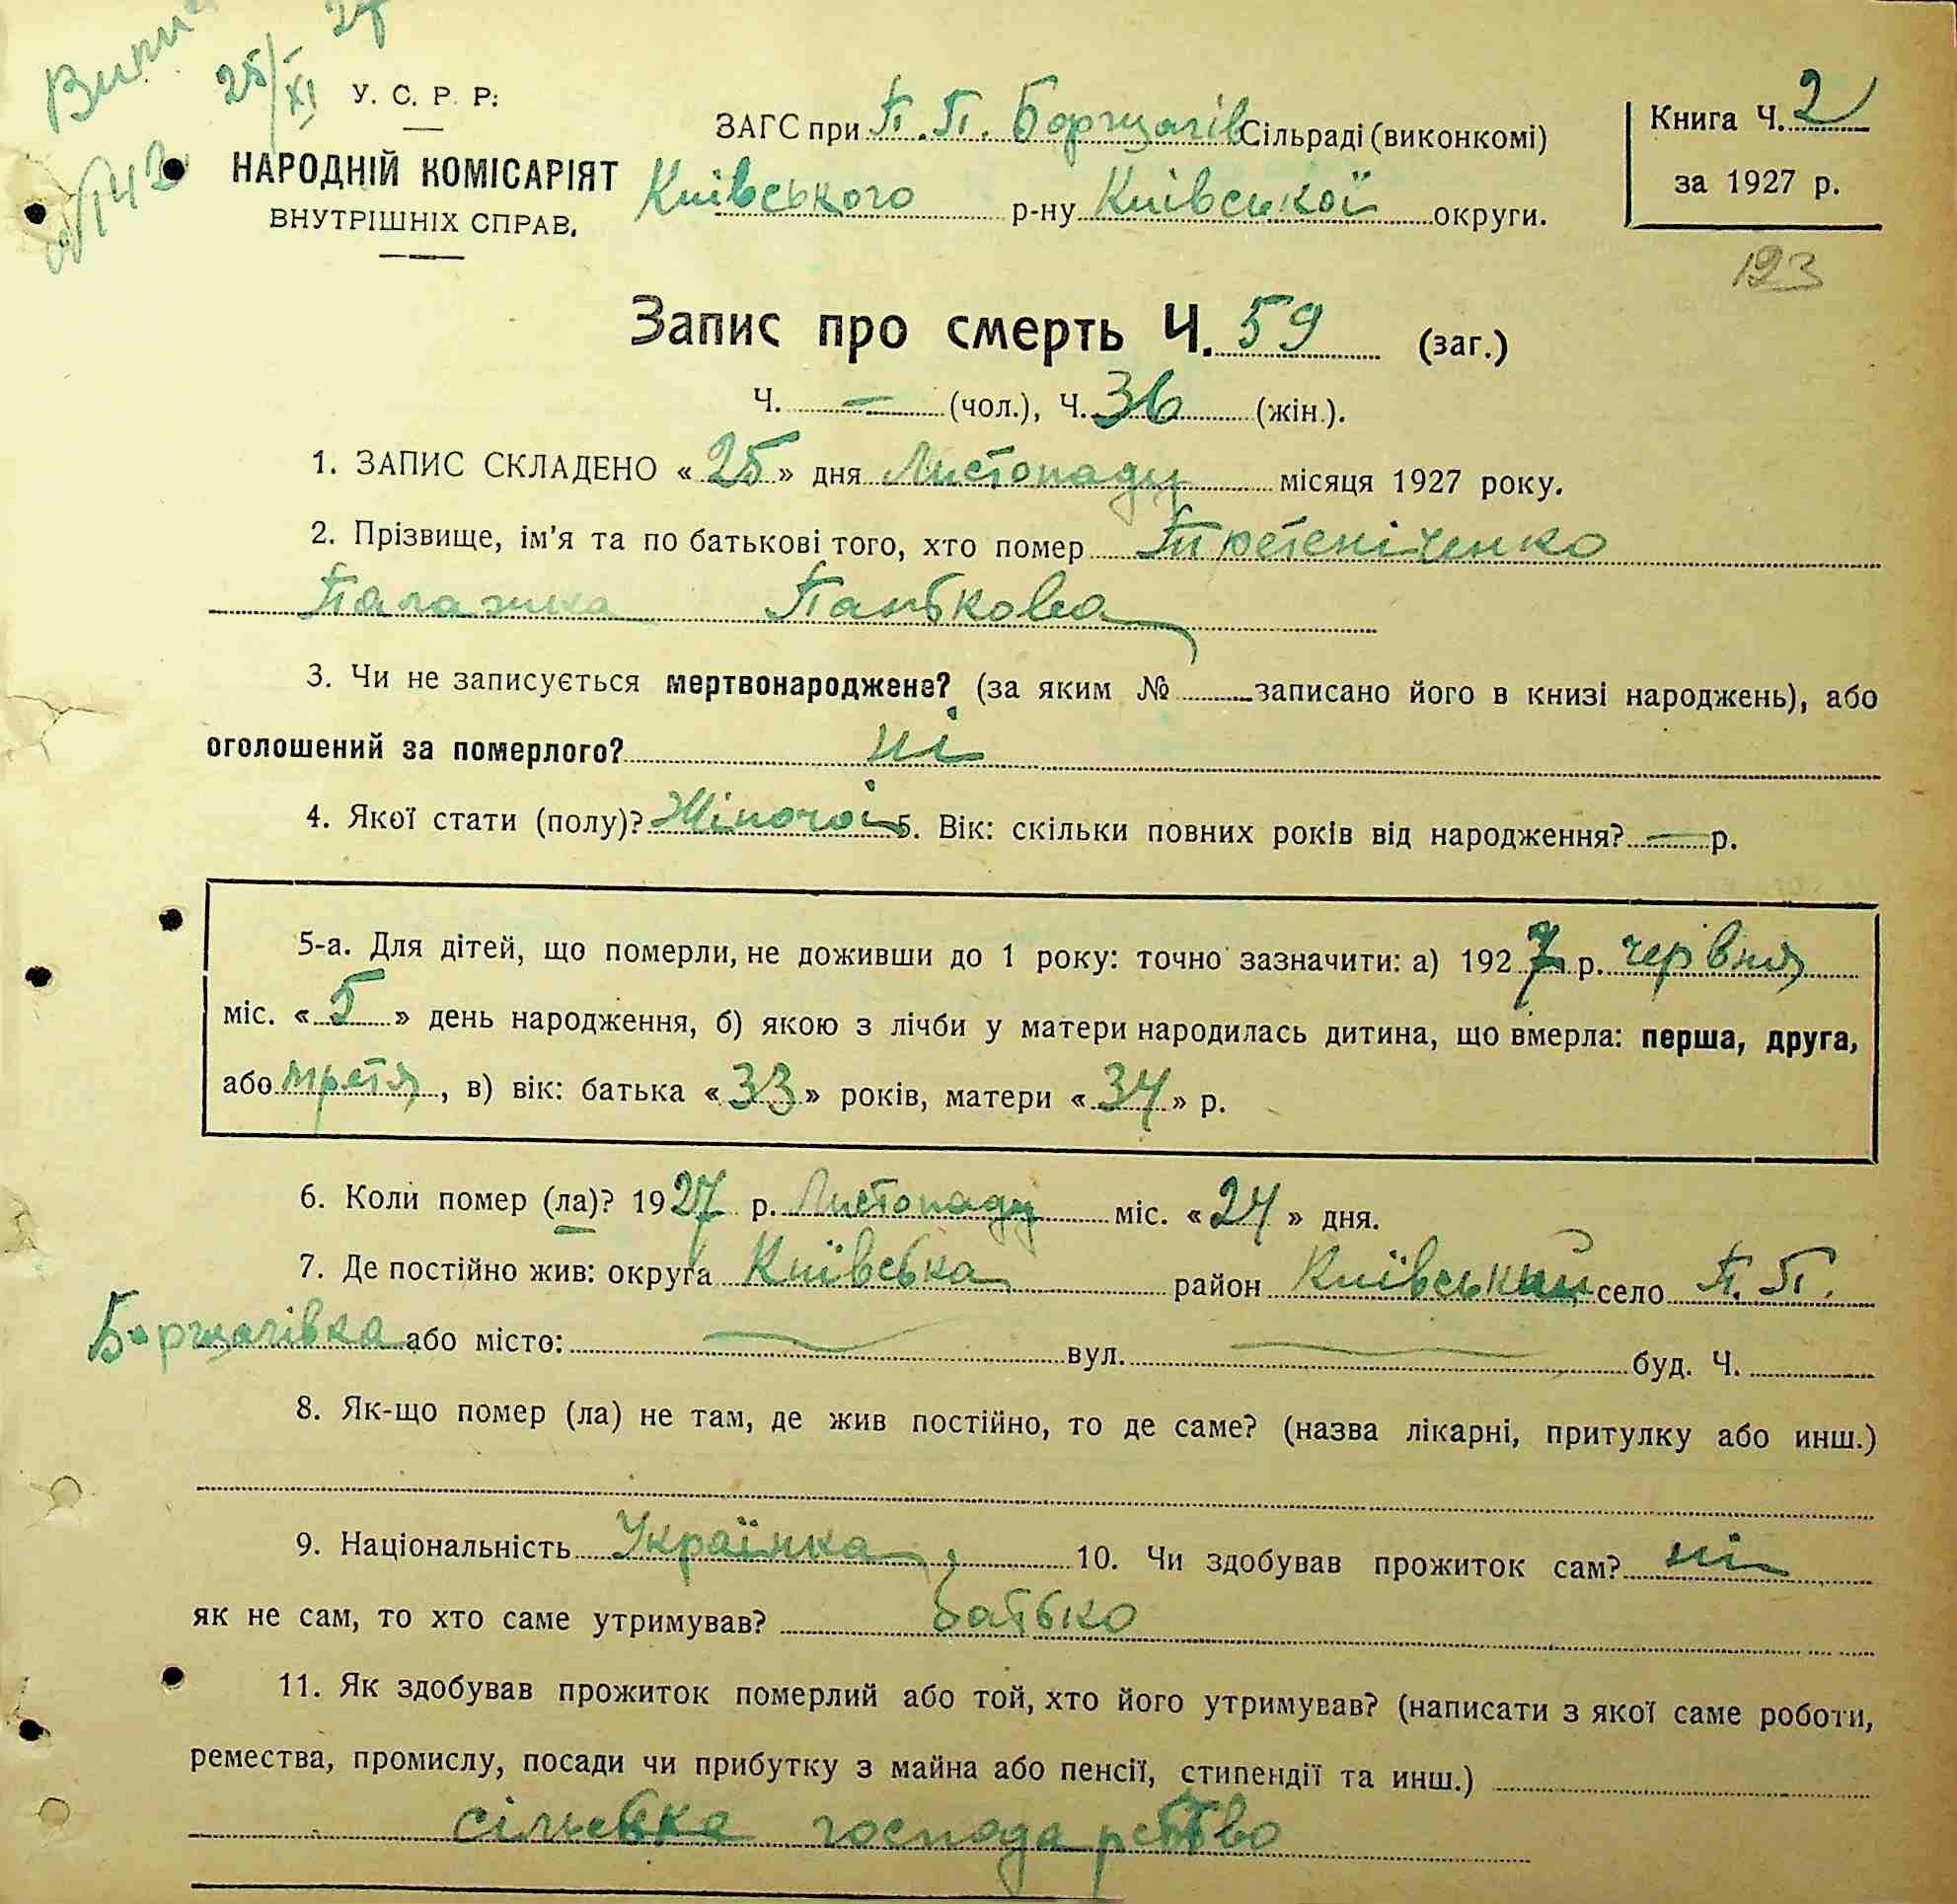 25/XI 27
У. С. Р. Р.
НАРОДНІЙ КОМІСАРІЯТ
ВНУТРІШНІХ СПРАВ.
ЗАГС при П. П. Борщагів Сільраді (виконкомі)
Київського р-ну Київської округи.
Книга Ч. 2
за 1927 р.
123
Запис про смерть Ч. 59 (заг.)
Ч. — (чол.), Ч. 36 (жін.).
1. ЗАПИС СКЛАДЕНО «25» дня Листопаду місяця 1927 року.
2. Прізвище, ім'я та по батькові того, хто помер
Палажка Панькова
3. Чи не записується мертвонароджене? (за яким № записано його в книзі народжень), або
оголошений за померлого? ні
4. Якої стати (полу)? Жіночої 5. Вік: скільки повних років від народження? — р.
5-а. Для дітей, що померли, не доживши до 1 року: точно зазначити: а) 1927 р. червня
міс. «5» день народження, б) якою з лічби у матери народилась дитина, що вмерла: перша, друга,
або третя, в) вік: батька «33» років, матери «34» р.
6. Коли помер (ла)? 1927 р. Листопаду міс. «24» дня.
7. Де постійно жив: округа Київська район Київський село П. П.
Борщагівка або місто: — вул. — буд. Ч.
8. Як-що помер (ла) не там, де жив постійно, то де саме? (назва лікарні, притулку або инш.)
9. Національність Українка, 10. Чи здобував прожиток сам? ні
як не сам, то хто саме утримував? батько
11. Як здобував прожиток померлий або той, хто його утримував? (написати з якої саме роботи,
ремества, промислу, посади чи прибутку з майна або пенсії, стипендії та инш.)
сільське господарство